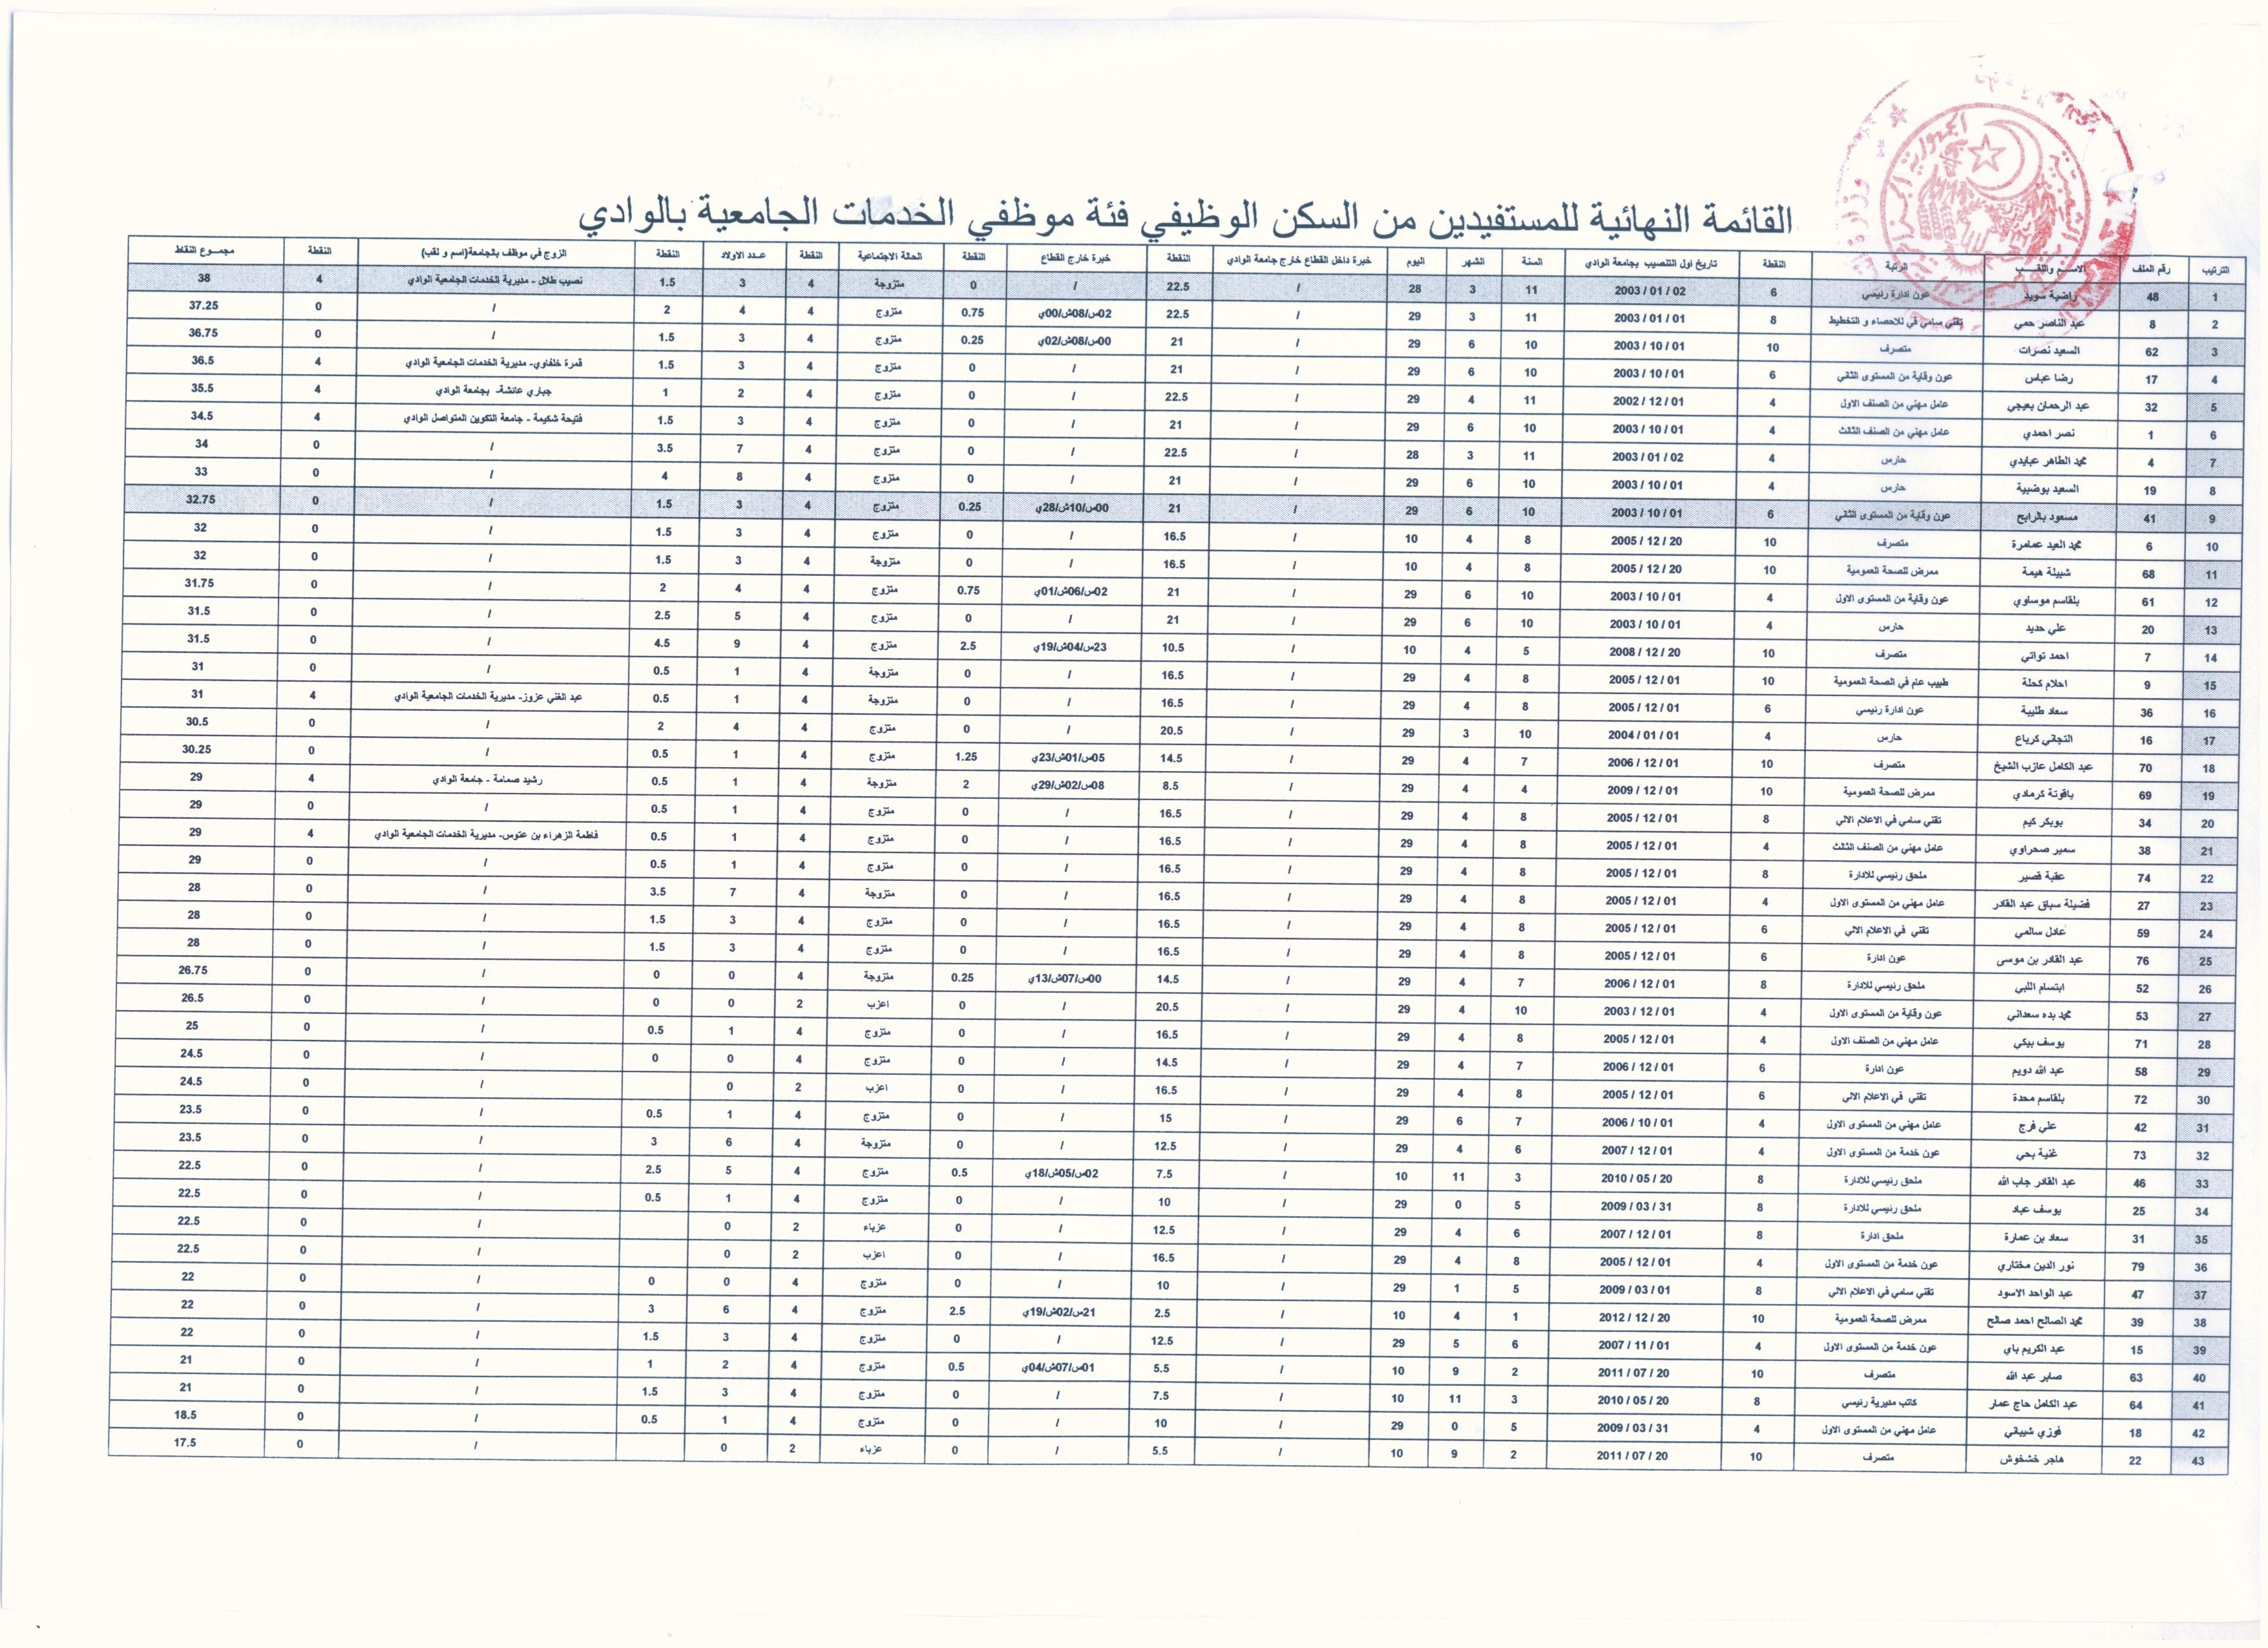 القائمة النهائية للمستفيدين من السكن الوظيفي فئة موظفي الخدمات الجامعية بالوادي
الترتيب رقم الملف الاسم واللقب الرتبة النقطة تاريخ اول التنصيب بجامعة الوادي السنة الشهر اليوم خبرة داخل القطاع خارج جامعة الوادي النقطة خبرة خارج القطاع النقطة الحالة الاجتماعية النقطة عدد الاولاد النقطة الزوج في موظف بالجامعة(اسم و لقب) النقطة مجموع النقاط
1 48 راضية سويد عون ادارة رئيسي 6 2003 / 01 / 02 11 3 28 / 22.5 / 0 متزوجة 4 3 1.5 نصيب طلال - مديرية الخدمات الجامعية الوادي 4 38
2 8 عبد الناصر حمي تقني سامي في للاحصاء و التخطيط 8 2003 / 01 / 01 11 3 29 / 22.5 02س/08ش/00ي 0.75 متزوج 4 4 2 / 0 37.25
3 62 السعيد نصرات متصرف 10 2003 / 10 / 01 10 6 29 / 21 00س/08ش/02ي 0.25 متزوج 4 3 1.5 / 0 36.75
4 17 رضا عباس عون وقاية من المستوى الثاني 6 2003 / 10 / 01 10 6 29 / 21 / 0 متزوج 4 3 1.5 قمرة خلفاوي- مديرية الخدمات الجامعية الوادي 4 36.5
5 32 عبد الرحمان بعيجي عامل مهني من الصنف الاول 4 2002 / 12 / 01 11 4 29 / 22.5 / 0 متزوج 4 2 1 جباري عائشة- بجامعة الوادي 4 35.5
6 1 نصر احمدي عامل مهني من الصنف الثالث 4 2003 / 10 / 01 10 6 29 / 21 / 0 متزوج 4 3 1.5 فتيحة شكيمة - جامعة التكوين المتواصل الوادي 4 34.5
7 4 محمد الطاهر عبايدي حارس 4 2003 / 01 / 02 11 3 28 / 22.5 / 0 متزوج 4 7 3.5 / 0 34
8 19 السعيد بوضبية حارس 4 2003 / 10 / 01 10 6 29 / 21 / 0 متزوج 4 8 4 / 0 33
9 41 مسعود بالرابح عون وقاية من المستوى الثاني 6 2003 / 10 / 01 10 6 29 / 21 00س/10ش/28ي 0.25 متزوج 4 3 1.5 / 0 32.75
10 6 محمد العيد عمامرة متصرف 10 2005 / 12 / 20 8 4 10 / 16.5 / 0 متزوج 4 3 1.5 / 0 32
11 68 شبيلة هيمة ممرض للصحة العمومية 10 2005 / 12 / 20 8 4 10 / 16.5 / 0 متزوجة 4 3 1.5 / 0 32
12 61 بلقاسم موساوي عون وقاية من المستوى الاول 4 2003 / 10 / 01 10 6 29 / 21 02س/06ش/01ي 0.75 متزوج 4 4 2 / 0 31.75
13 20 علي حديد حارس 4 2003 / 10 / 01 10 6 29 / 21 / 0 متزوج 4 5 2.5 / 0 31.5
14 7 احمد تواتي متصرف 10 2008 / 12 / 20 5 4 10 / 10.5 23س/04ش/19ي 2.5 متزوج 4 9 4.5 / 0 31.5
15 9 احلام كحلة طبيب عام في الصحة العمومية 10 2005 / 12 / 01 8 4 29 / 16.5 / 0 متزوجة 4 1 0.5 / 0 31
16 36 سعاد طليبة عون ادارة رئيسي 6 2005 / 12 / 01 8 4 29 / 16.5 / 0 متزوجة 4 1 0.5 عبد الغني عزوز- مديرية الخدمات الجامعية الوادي 4 31
17 16 التجاني كرباع حارس 4 2004 / 01 / 01 10 3 29 / 20.5 / 0 متزوج 4 4 2 / 0 30.5
18 70 عبد الكامل عازب الشيخ متصرف 10 2006 / 12 / 01 7 4 29 / 14.5 05س/01ش/23ي 1.25 متزوج 4 1 0.5 / 0 30.25
19 69 ياقوتة كرمادي ممرض للصحة العمومية 10 2009 / 12 / 01 4 4 29 / 8.5 08س/02ش/29ي 2 متزوجة 4 1 0.5 رشيد صمامة - جامعة الوادي 4 29
20 34 بوبكر كيم تقني سامي في الاعلام الالي 8 2005 / 12 / 01 8 4 29 / 16.5 / 0 متزوج 4 1 0.5 / 0 29
21 38 سمير صحراوي عامل مهني من الصنف الثالث 4 2005 / 12 / 01 8 4 29 / 16.5 / 0 متزوج 4 1 0.5 فاطمة الزهراء بن عتوس- مديرية الخدمات الجامعية الوادي 4 29
22 74 عقبة قصير ملحق رئيسي للادارة 8 2005 / 12 / 01 8 4 29 / 16.5 / 0 متزوج 4 1 0.5 / 0 29
23 27 فضيلة سباق عبد القادر عامل مهني من المستوى الاول 4 2005 / 12 / 01 8 4 29 / 16.5 / 0 متزوجة 4 7 3.5 / 0 28
24 59 عادل سالمي تقني في الاعلام الالي 6 2005 / 12 / 01 8 4 29 / 16.5 / 0 متزوج 4 3 1.5 / 0 28
25 76 عبد القادر بن موسى عون ادارة 6 2005 / 12 / 01 8 4 29 / 16.5 / 0 متزوج 4 3 1.5 / 0 28
26 52 ابتسام اللبي ملحق رئيسي للادارة 8 2006 / 12 / 01 7 4 29 / 14.5 00س/07ش/13ي 0.25 متزوجة 4 0 0 / 0 26.75
27 53 محمد بده سعداني عون وقاية من المستوى الاول 4 2003 / 12 / 01 10 4 29 / 20.5 / 0 اعزب 2 0 0 / 0 26.5
28 71 يوسف بيكي عامل مهني من الصنف الاول 4 2005 / 12 / 01 8 4 29 / 16.5 / 0 متزوج 4 1 0.5 / 0 25
29 58 عبد الله دويم عون ادارة 6 2006 / 12 / 01 7 4 29 / 14.5 / 0 متزوج 4 0 0 / 0 24.5
30 72 بلقاسم محدة تقني في الاعلام الالي 6 2005 / 12 / 01 8 4 29 / 16.5 / 0 اعزب 2 0 / 0 24.5
31 42 علي فرج عامل مهني من المستوى الاول 4 2006 / 10 / 01 7 6 29 / 15 / 0 متزوج 4 1 0.5 / 0 23.5
32 73 غنية بحي عون خدمة من المستوى الاول 4 2007 / 12 / 01 6 4 29 / 12.5 / 0 متزوجة 4 6 3 / 0 23.5
33 46 عبد القادر جاب الله ملحق رئيسي للادارة 8 2010 / 05 / 20 3 11 10 / 7.5 02س/05ش/18ي 0.5 متزوج 4 5 2.5 / 0 22.5
34 25 يوسف عباد ملحق رئيسي للادارة 8 2009 / 03 / 31 5 0 29 / 10 / 0 متزوج 4 1 0.5 / 0 22.5
35 31 سعاد بن عمارة ملحق ادارة 8 2007 / 12 / 01 6 4 29 / 12.5 / 0 عزباء 2 0 / 0 22.5
36 79 نور الدين مختاري عون خدمة من المستوى الاول 4 2005 / 12 / 01 8 4 29 / 16.5 / 0 اعزب 2 0 / 0 22.5
37 47 عبد الواحد الاسود تقني سامي في الاعلام الالي 8 2009 / 03 / 01 5 1 29 / 10 / 0 متزوج 4 0 0 / 0 22
38 39 محمد الصالح احمد صالح ممرض للصحة العمومية 10 2012 / 12 / 20 1 4 10 / 2.5 21س/02ش/19ي 2.5 متزوج 4 6 3 / 0 22
39 15 عبد الكريم باي عون خدمة من المستوى الاول 4 2007 / 11 / 01 6 5 29 / 12.5 / 0 متزوج 4 3 1.5 / 0 22
40 63 صابر عبد الله متصرف 10 2011 / 07 / 20 2 9 10 / 5.5 01س/07ش/04ي 0.5 متزوج 4 2 1 / 0 21
41 64 عبد الكامل حاج عمار كاتب مديرية رئيسي 8 2010 / 05 / 20 3 11 10 / 7.5 / 0 متزوج 4 3 1.5 / 0 21
42 18 فوزي شيباني عامل مهني من المستوى الاول 4 2009 / 03 / 31 5 0 29 / 10 / 0 متزوج 4 1 0.5 / 0 18.5
43 22 هاجر خشخوش متصرف 10 2011 / 07 / 20 2 9 10 / 5.5 / 0 عزباء 2 0 / 0 17.5